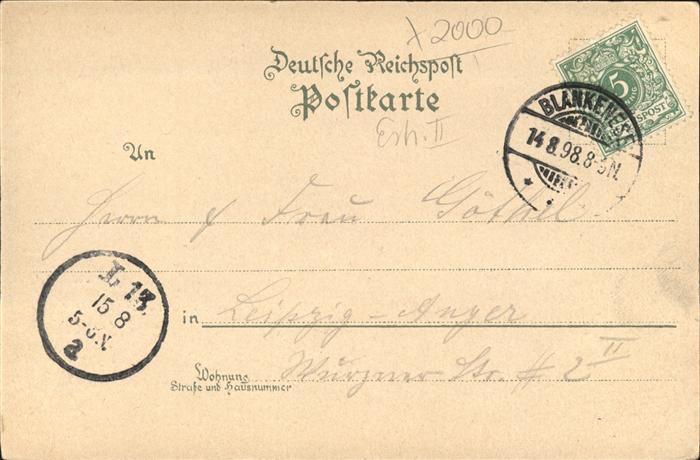 x2000
Deutsche Reichspost
Postkarte
5
BLANKENESE
14.8.98.8-9N.
An
Herrn & Frau
L 13.
15 8
5-6.N.
a
in Leipzig-Anger
Wurzner Str. # 2 II
Wohnung
Straße und Hausnummer